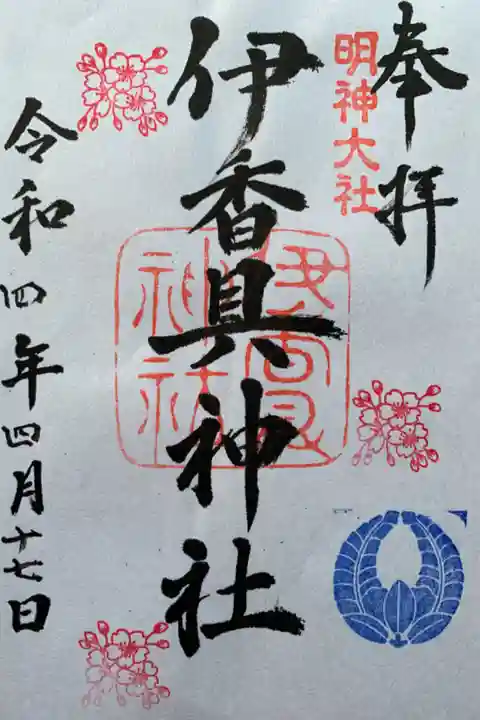 奉拝
明神大社
伊香具神社
令和四年四月十七日